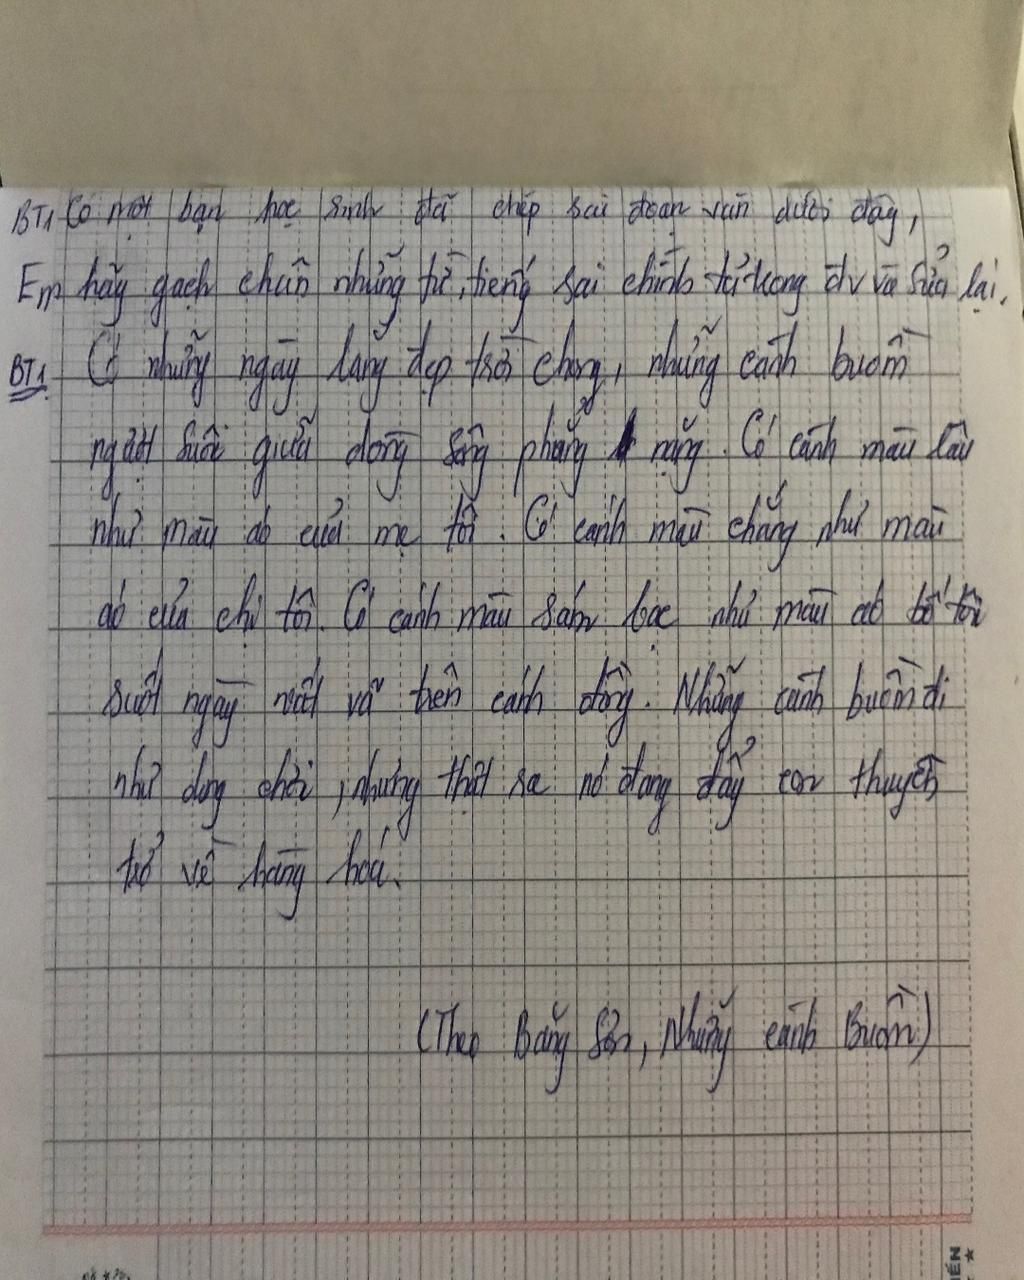 BT1 Có một bạn học sinh đã chép sai đoạn văn dưới đây,
Em hãy gạch chân những từ, tiếng sai chính tả trong đv và sửa lại.
BT1 Có những ngày lắng đẹp trời chong, những cánh buồm
ngượt suôi giữa dòng sông phẳng nặng. Có cánh màu lâu
như màu áo của mẹ tôi. Có cánh màu chắng như màu
áo của chị tôi. Có cánh màu sám bạc như màu áo bố tôi
suốt ngày vất vả trên cánh đồng. Những cánh buồm đi
như dong chơi, nhưng thật sa nó đang đẩy con thuyền
trở về hàng hoá.
(Theo Băng Sơn, Những cánh Buồm)
ẾN